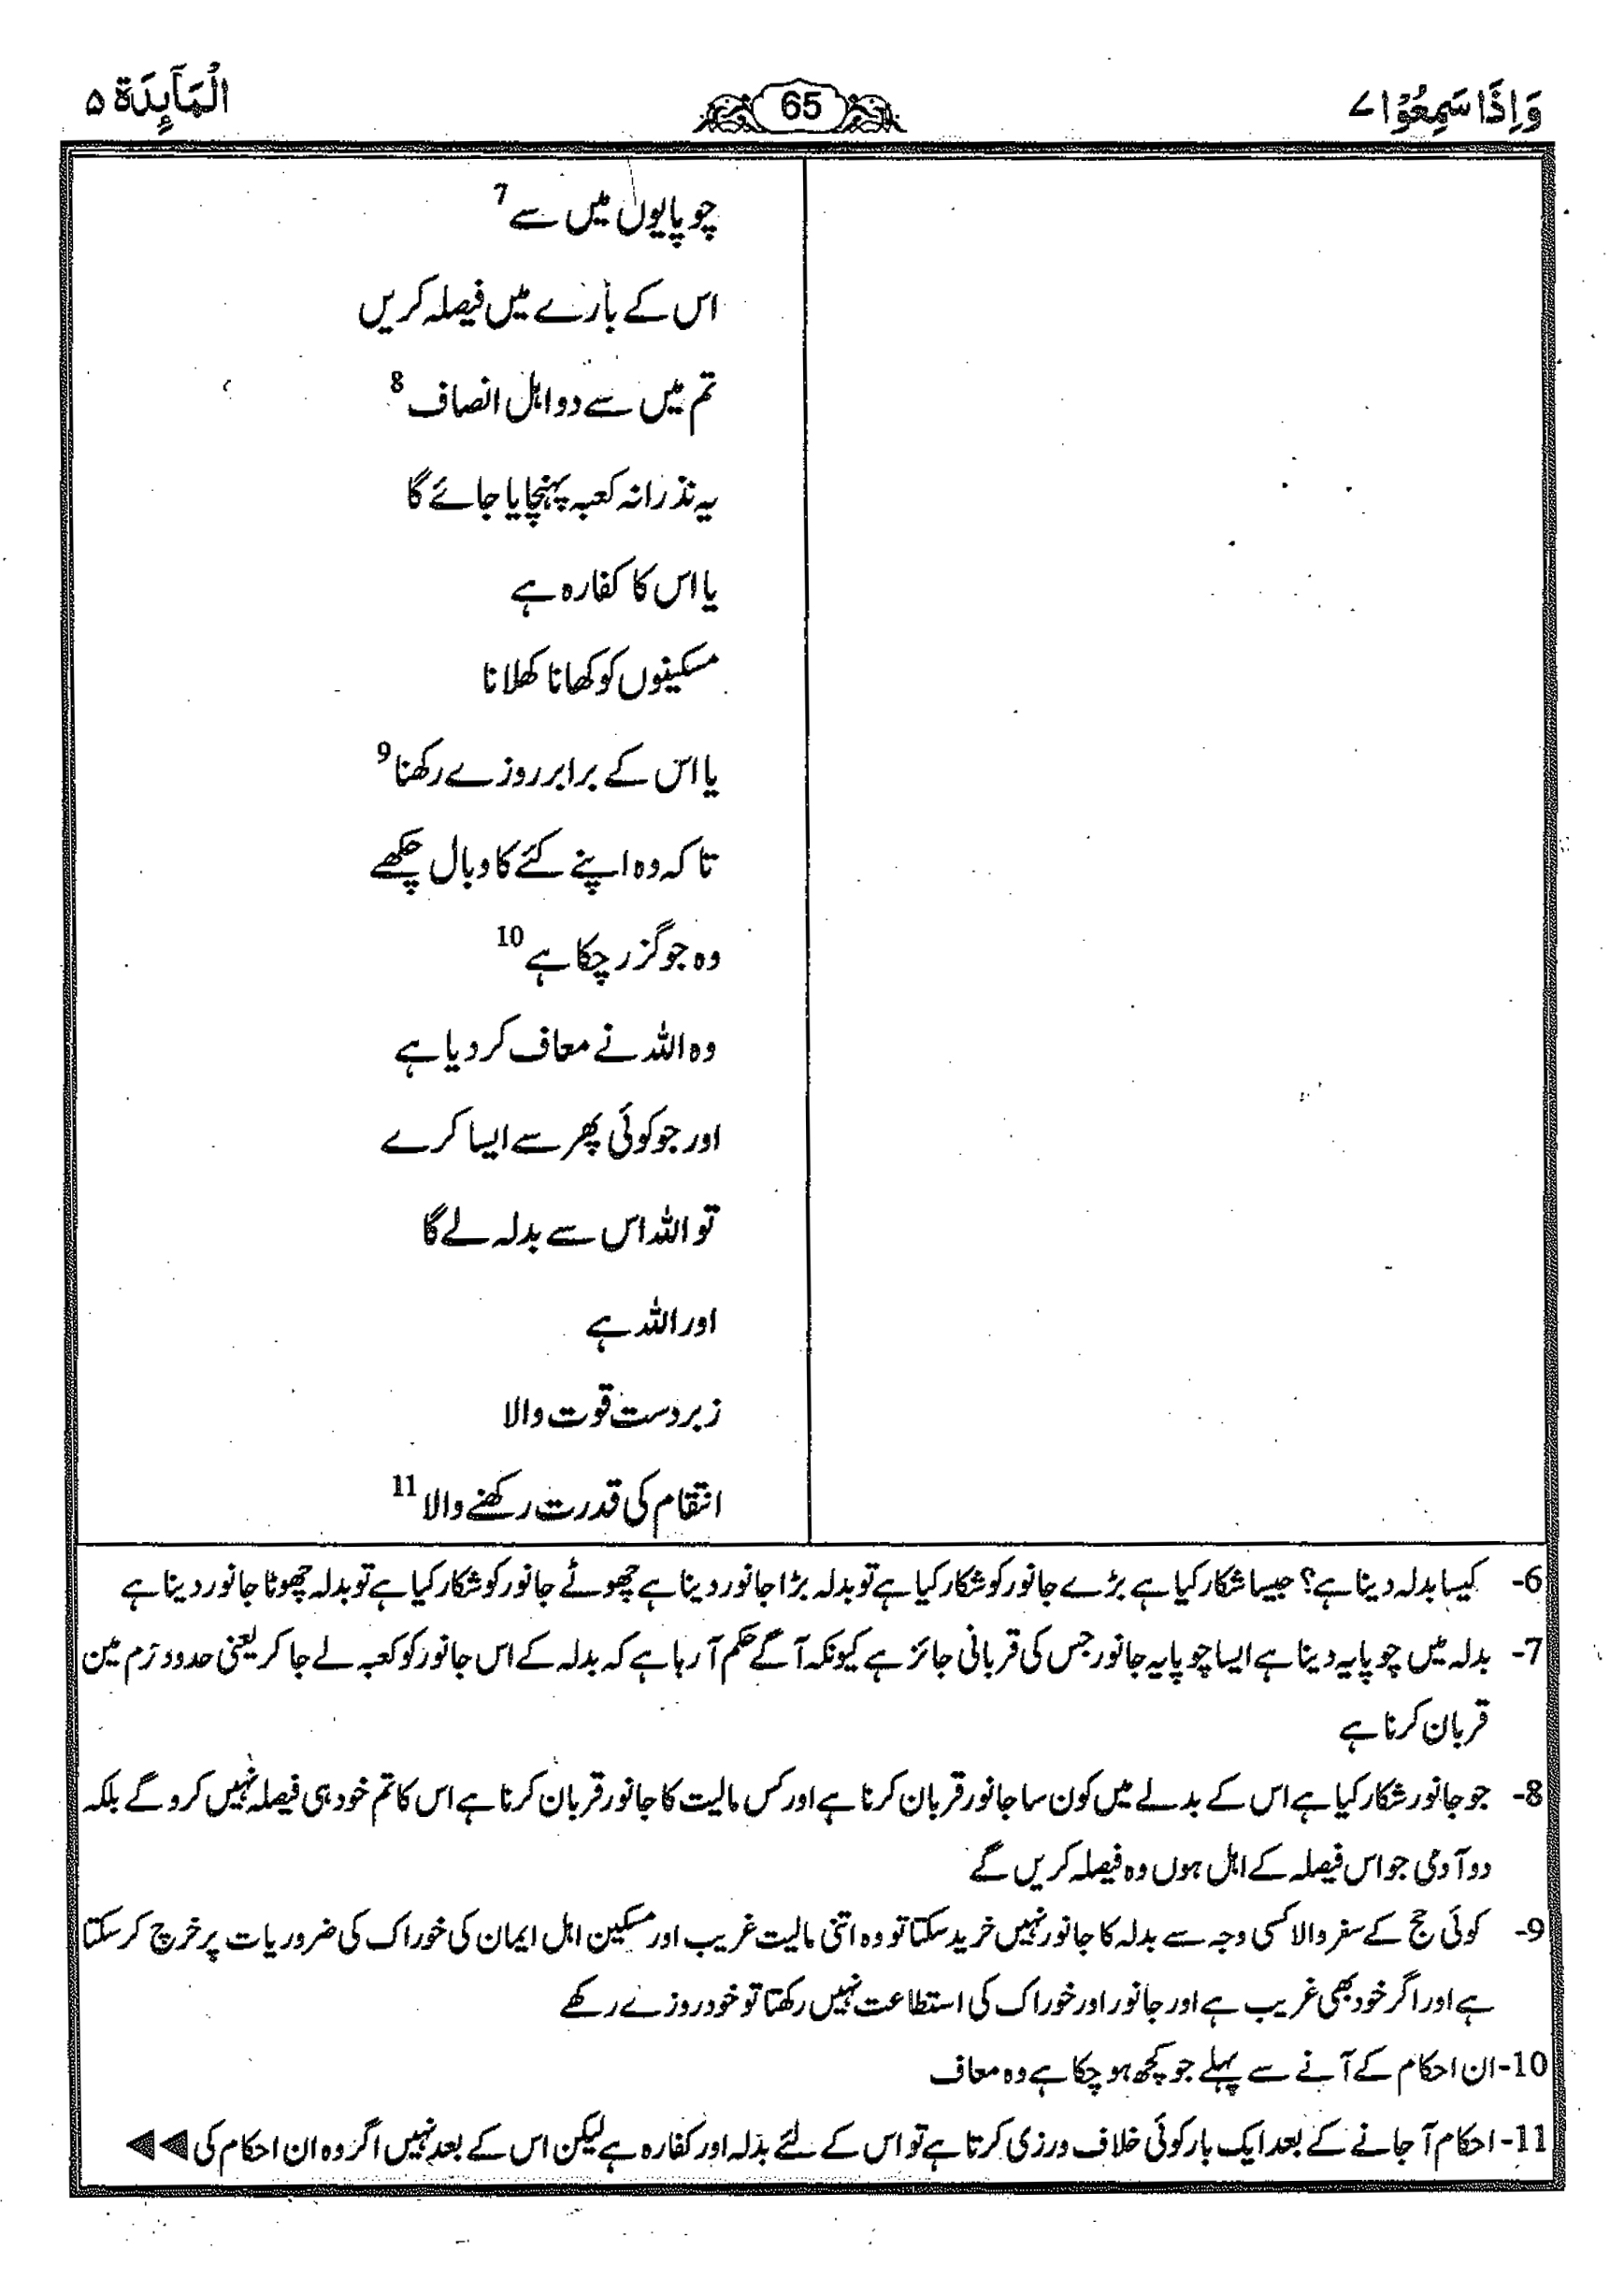 وَاِذَا سَمِعُوْا ۷
65
الْمَآىِٕدَة ۵
چوپایوں میں سے 7
اس کے بارے میں فیصلہ کریں
تم میں سے دو اہل انصاف 8
یہ نذرانہ کعبہ پہنچایا جائے گا
یا اس کا کفارہ ہے
مسکینوں کو کھانا کھلانا
یا اس کے برابر روزے رکھنا 9
تا کہ وہ اپنے کئے کا وبال چکھے
وہ جو گزر چکا ہے 10
وہ اللہ نے معاف کر دیا ہے
اور جو کوئی پھر سے ایسا کرے
تو اللہ اس سے بدلہ لے گا
اور اللہ ہے
زبردست قوت والا
انتقام کی قدرت رکھنے والا 11
6- کیسا بدلہ دینا ہے؟ جیسا شکار کیا ہے بڑے جانور کو شکار کیا ہے تو بدلہ بڑا جانور دینا ہے چھوٹے جانور کو شکار کیا ہے تو بدلہ چھوٹا جانور دینا ہے
7- بدلہ میں چوپایہ دینا ہے ایسا چوپایہ جانور جس کی قربانی جائز ہے کیونکہ آگے حکم آ رہا ہے کہ بدلہ کے اس جانور کو کعبہ لے جا کر یعنی حدود حرم میں
قربان کرنا ہے
8- جو جانور شکار کیا ہے اس کے بدلے میں کون سا جانور قربان کرنا ہے اور کس مالیت کا جانور قربان کرنا ہے اس کا تم خود ہی فیصلہ نہیں کرو گے بلکہ
دو آدمی جو اس فیصلہ کے اہل ہوں وہ فیصلہ کریں گے
9- کوئی حج کے سفر والا کسی وجہ سے بدلہ کا جانور نہیں خرید سکتا تو وہ اتنی مالیت غریب اور مسکین اہل ایمان کی خوراک کی ضروریات پر خرچ کر سکتا
ہے اور اگر خود بھی غریب ہے اور جانور اور خوراک کی استطاعت نہیں رکھتا تو خود روزے رکھے
10- ان احکام کے آنے سے پہلے جو کچھ ہو چکا ہے وہ معاف
11- احکام آ جانے کے بعد ایک بار کوئی خلاف ورزی کرتا ہے تو اس کے لئے بدلہ اور کفارہ ہے لیکن اس کے بعد نہیں اگر وہ ان احکام کی ◄◄